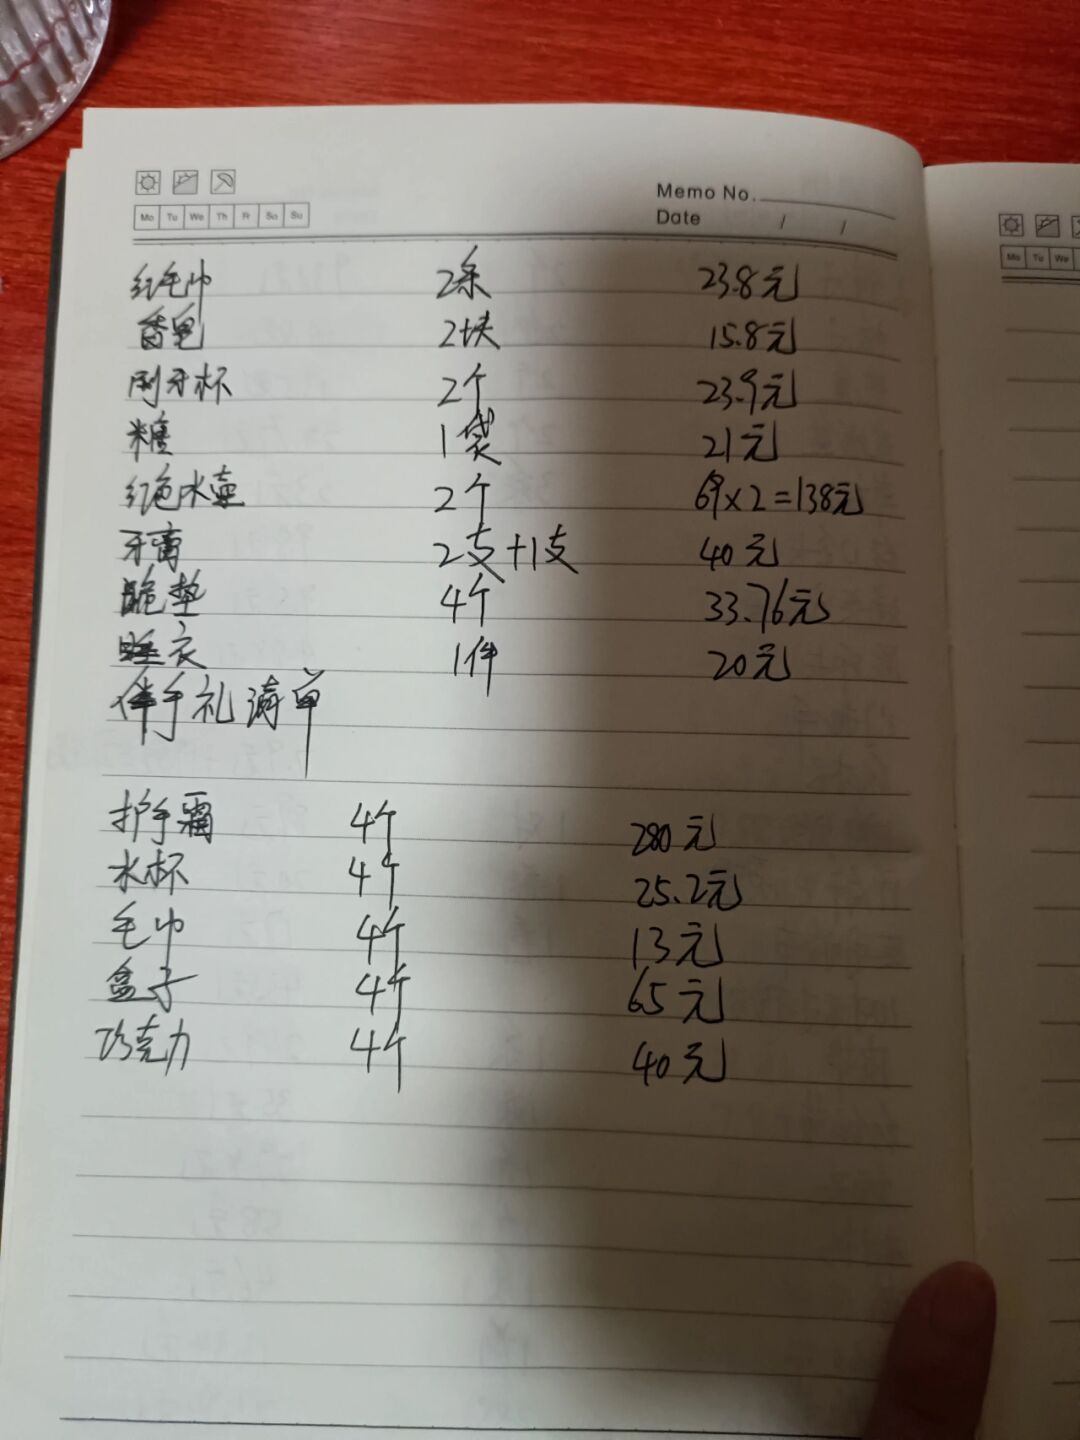 Memo No.
Date / /
Mo Tu We Th Fr Sa Su
红毛巾 2条 23.8元
香皂 2块 15.8元
刷牙杯 2个 23.9元
糖 1袋 21元
红色水壶 2个 69×2=138元
牙膏 2支+1支 40元
跪垫 4个 33.76元
睡衣 1件 20元
伴手礼清单
护手霜 4个 280元
水杯 4个 25.2元
毛巾 4个 13元
盒子 4个 65元
巧克力 4个 40元
Mo Tu We